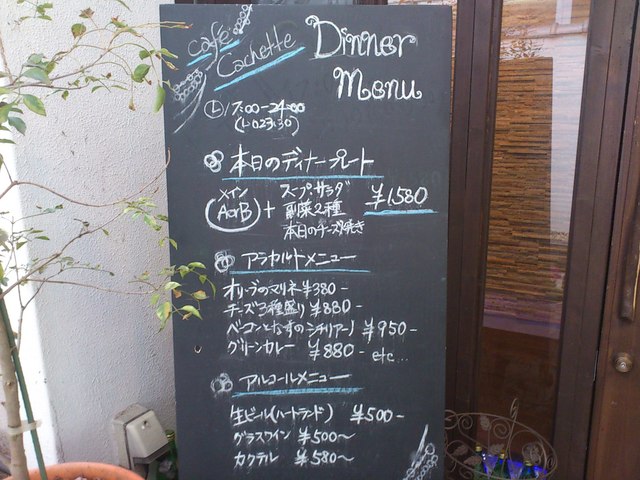 café Cachette
Dinner Menu
17:00-24:00
(L.O 23:30)
本日のディナープレート
メイン
(A or B) +
スープ・サラダ
副菜2種
本日のチーズ焼き
¥1,580
アラカルトメニュー
オリーブのマリネ ¥380-
チーズ3種盛り ¥880-
ベーコンとなすのシチリアーノ ¥950-
グリーンカレー ¥880-
etc...
アルコールメニュー
生ビール(ハートランド) ¥500-
グラスワイン ¥500〜
カクテル ¥580〜